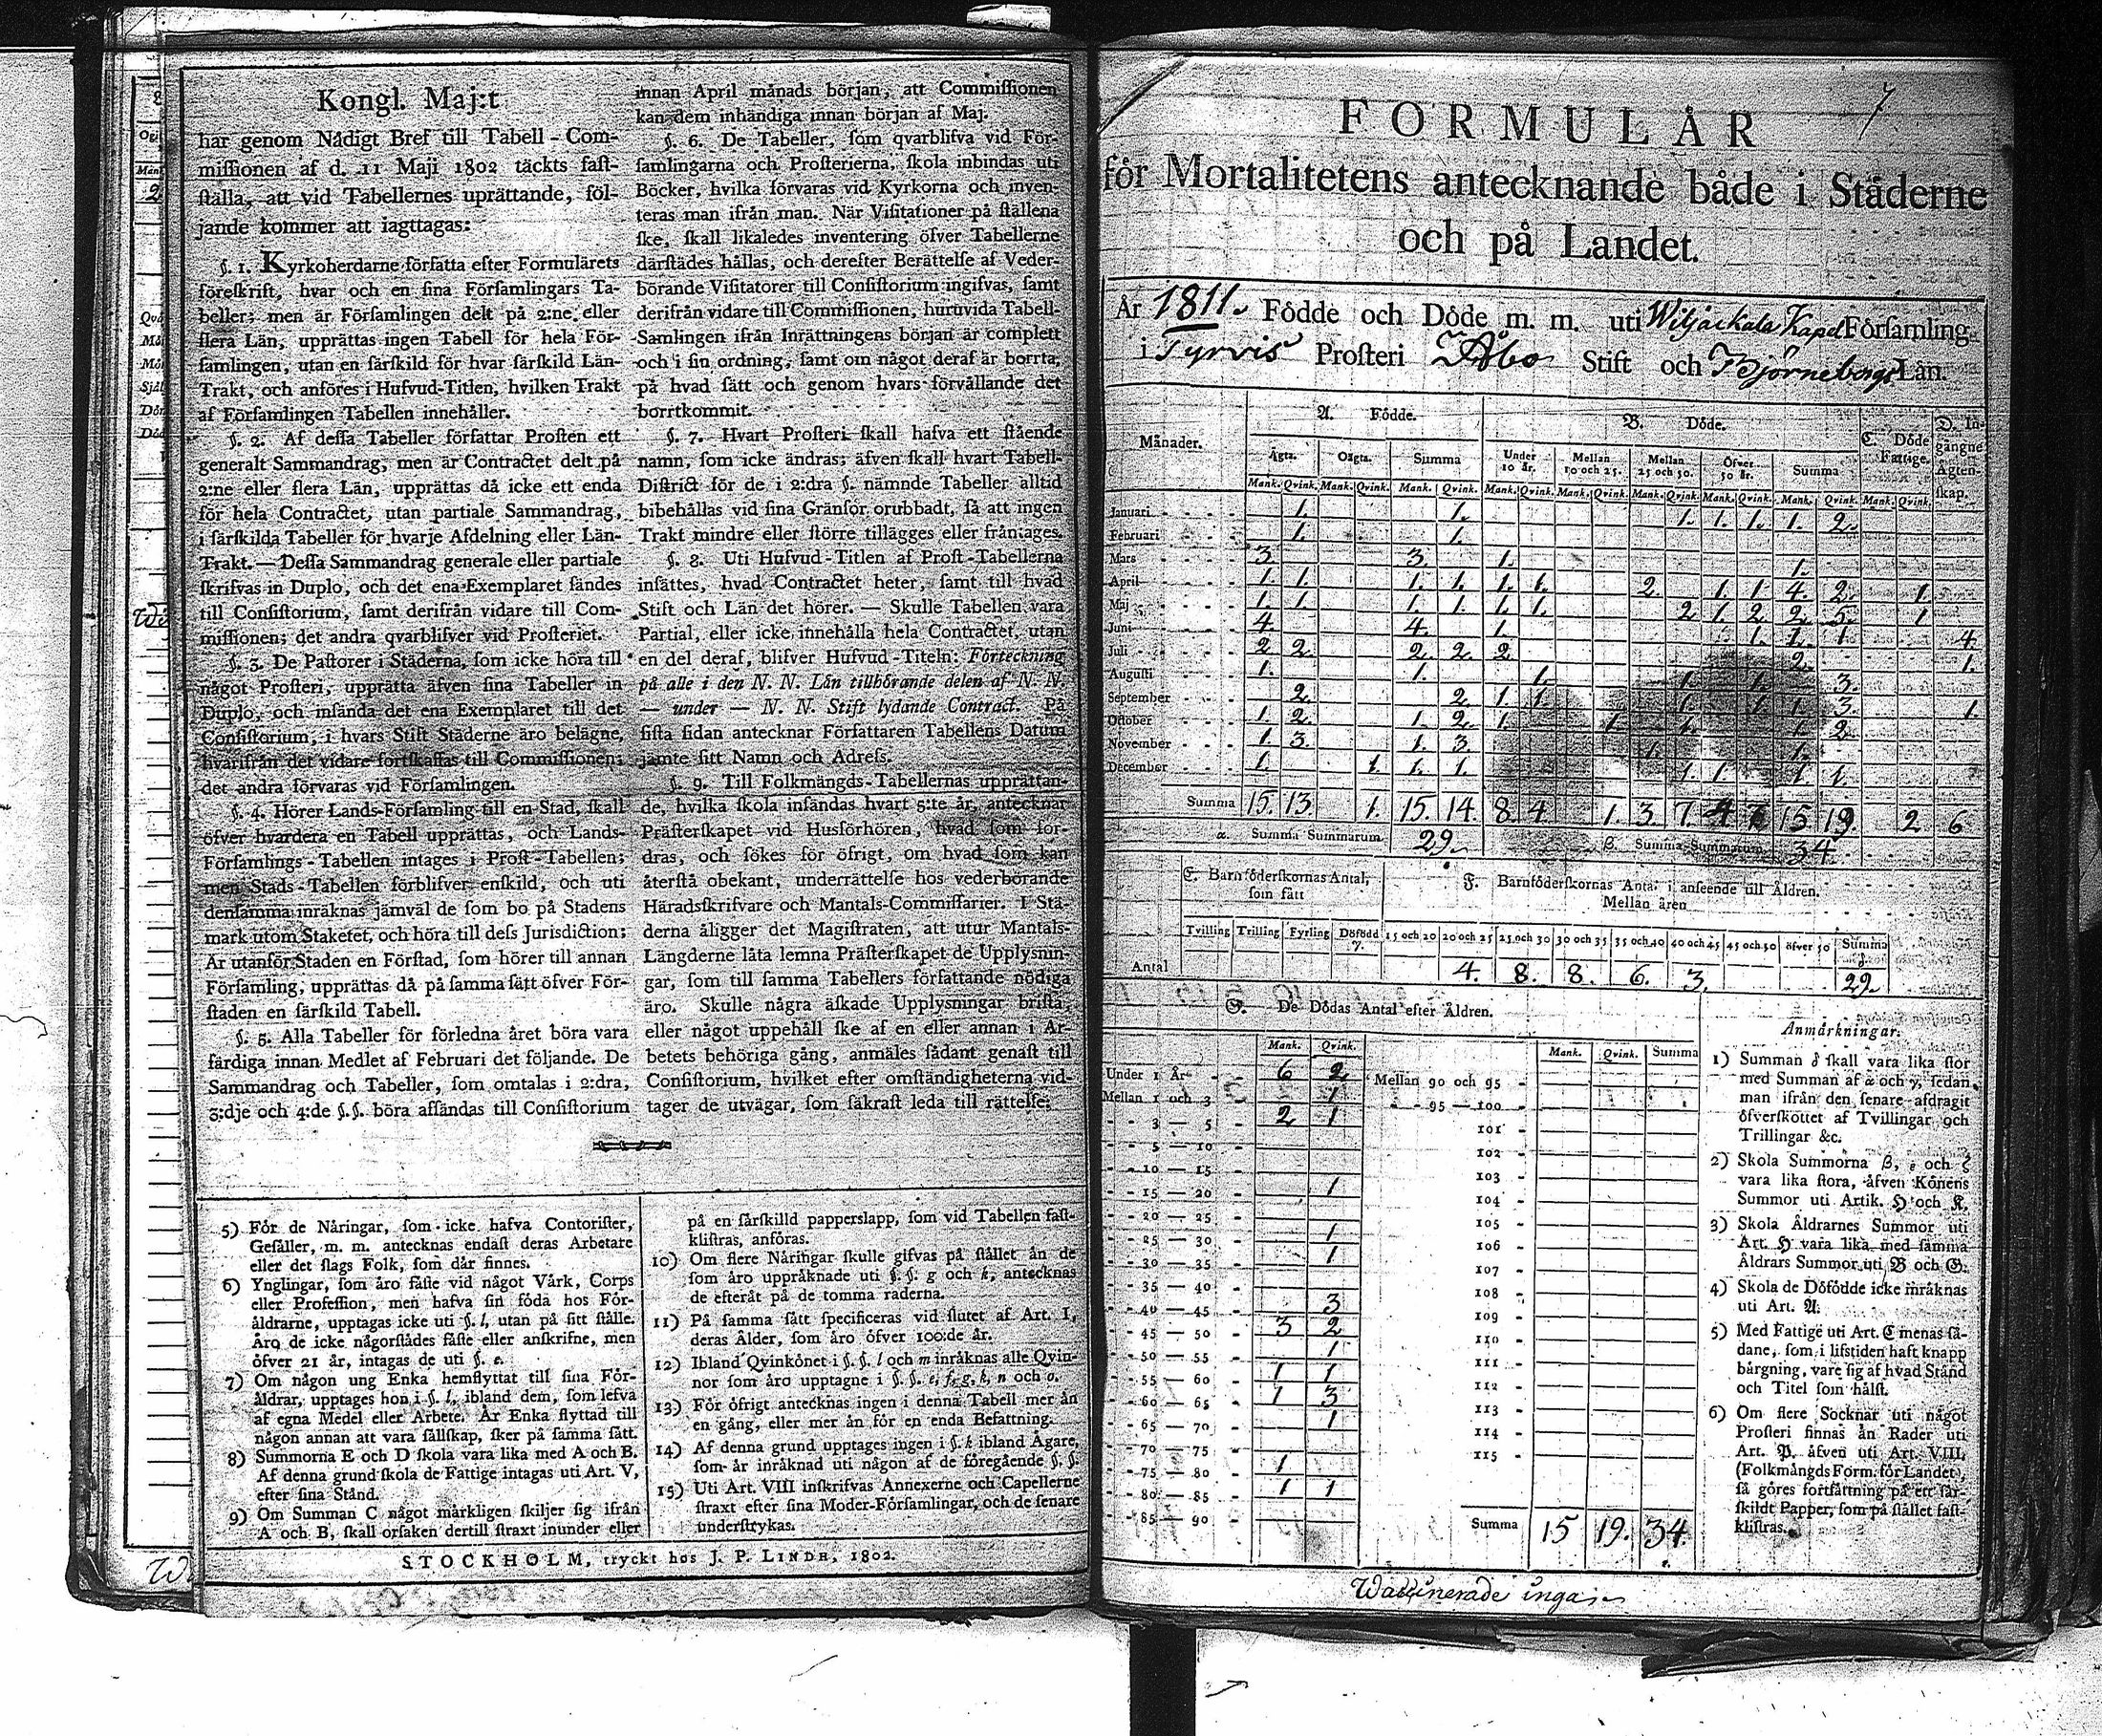 Kongl. Maj:t
har genom Nådigt Bref till Tabell-Com-
miſſionen af d. 11 Maji 1802 täckts faſt-
ſtälla, att vid Tabellernes uprättande, föl-
jande kommer att iagttagas:
§. 1. Kyrkoherdarne författa efter Formulärets
föreſkrift, hvar och en ſina Förſamlingars Ta-
beller; men är Förſamlingen delt på 2:ne eller
flera Län, upprättas ingen Tabell för hela För-
ſamlingen, utan en färſkild för hvar färſkild Län-
Trakt, och anföres i Hufvud-Titlen, hvilken Trakt
af Förſamlingen Tabellen innehåller.
§. 2. Af deſſa Tabeller författar Proſten ett
generalt Sammandrag, men är Contractet delt på
2:ne eller flera Län, upprättas då icke ett enda
för hela Contractet, utan partiale Sammandrag,
i ſärſkilda Tabeller för hvarje Afdelning eller Län-
Trakt. — Deſſa Sammandrag generale eller partiale
ſkrifvas in Duplo, och det ena Exemplaret ſändes
till Conſiſtorium, ſamt derifrån vidare till Com-
miſſionen; det andra qvarblifver vid Proſteriet.
§. 3. De Paſtorer i Städerna, ſom icke höra till
något Proſteri, upprätta äfven ſina Tabeller in
Duplo, och inſända det ena Exemplaret till det
Conſiſtorium, i hvars Stift Städerne äro belägne,
hvarifrån det vidare fortſkaffas till Commiſſionen;
det andra förvaras vid Förſamlingen.
§. 4. Hörer Lands-Förſamling till en Stad, ſkall
öfver hvardera en Tabell upprättas, och Lands-
Förſamlings-Tabellen intages i Proſt-Tabellen;
men Stads-Tabellen förblifver enſkild, och uti
denſamma inräknas jämväl de ſom bo på Stadens
mark utom Staketet, och höra till deſs Jurisdiction;
Är utanför Staden en Förſtad, ſom hörer till annan
Förſamling, upprättas då på ſamma ſätt öfver För-
ſtaden en ſärſkild Tabell.
§. 5. Alla Tabeller för förledna året böra vara
färdiga innan Medlet af Februari det följande. De
Sammandrag och Tabeller, ſom omtalas i 2:dra,
3:dje och 4:de §.§. böra afſändas till Conſiſtorium
innan April månads början, att Commiſſionen
kan dem inhändiga innan början af Maj.
§. 6. De Tabeller, ſom qvarblifva vid För-
ſamlingarna och Proſterierna, ſkola inbindas uti
Böcker, hvilka förvaras vid Kyrkorna och inven-
teras man ifrån man. När Viſitationer på ſtällena
ſke, ſkall likaledes inventering öfver Tabellerne
därſtädes hållas, och derefter Berättelſe af Veder-
börande Viſitatorer till Conſiſtorium ingifvas, ſamt
derifrån vidare till Commiſſionen, huruvida Tabell-
Samlingen ifrån Inrättningens början är complett
och i ſin ordning, ſamt om något deraf är borrta,
på hvad ſätt och genom hvars förvållande det
borrtkommit.
§. 7. Hvart Proſteri ſkall hafva ett ſtående
namn, ſom icke ändras; äfven ſkall hvart Tabell-
Diſtrict för de i 2:dra §. nämnde Tabeller alltid
bibehållas vid ſina Gränſor orubbadt, ſå att ingen
Trakt mindre eller ſtörre tillägges eller fråntages.
§. 8. Uti Hufvud-Titlen af Proſt-Tabellerna
inſättes, hvad Contractet heter, ſamt till hvad
Stift och Län det hörer. — Skulle Tabellen vara
Partial, eller icke innehålla hela Contractet, utan
en del deraf, blifver Hufvud-Titeln: Förteckning
på alle i den N. N. Län tillhörande delen af N. N.
— under — N. N. Stift lydande Contract. På
ſiſta ſidan antecknar Författaren Tabellens Datum
jämte ſitt Namn och Adreſs.
§. 9. Till Folkmängds-Tabellernas upprättan-
de, hvilka ſkola inſändas hvart 5:te år, antecknar
Präſterſkapet vid Husförhören, hvad ſom for-
dras, och ſökes för öfrigt, om hvad ſom kan
återſtå obekant, underrättelſe hos vederbörande
Häradsſkrifvare och Mantals-Commiſſarier. I Stä-
derna åligger det Magiſtraten, att utur Mantals-
Längderne låta lemna Präſterſkapet de Upplysnin-
gar, ſom till ſamma Tabellers författande nödiga
äro. Skulle några äſkade Upplysningar briſta,
eller något uppehåll ſke af en eller annan i Ar-
betets behöriga gång, anmäles ſådant genaſt till
Conſiſtorium, hvilket efter omſtändigheterna vid-
tager de utvägar, ſom ſäkraſt leda till rättelſe.
5) För de Näringar, ſom icke hafva Contoriſter,
Geſäller, m. m. antecknas endaſt deras Arbetare
eller det ſlags Folk, ſom där finnes.
6) Ynglingar, ſom äro fäſte vid något Värk, Corps
eller Profeſſion, men hafva ſin föda hos För-
äldrarne, upptagas icke uti §. l, utan på ſitt ſtälle.
Äro de icke någorſtädes fäſte eller anſkrifne, men
öfver 21 år, intagas de uti §. e.
7) Om någon ung Enka hemflyttat till ſina För-
äldrar, upptages hon i §. l, ibland dem, ſom lefva
af egna Medel eller Arbete. Är Enka flyttad till
någon annan att vara ſällſkap, ſker på ſamma ſätt.
8) Summorna E och D ſkola vara lika med A och B.
Af denna grund ſkola de Fattige intagas uti Art. V,
efter ſina Stånd.
9) Om Summan C något märkligen ſkiljer ſig ifrån
A och B, ſkall orſaken dertill ſtraxt inunder eller
på en ſärſkilld papperslapp, ſom vid Tabellen faſt-
kliſtras, anföras.
10) Om flere Näringar ſkulle gifvas på ſtället än de
ſom äro uppräknade uti §. §. g och k, antecknas
de efteråt på de tomma raderna.
11) På ſamma ſätt ſpecificeras vid ſlutet af Art. I,
deras Ålder, ſom äro öfver 100:de år.
12) Ibland Qvinkönet i §. §. l och m inräknas alle Qvin-
nor ſom äro upptagne i §. §. e, f, g, k, n och o.
13) För öfrigt antecknas ingen i denna Tabell mer än
en gång, eller mer än för en enda Befattning.
14) Af denna grund upptages ingen i §. k ibland Ägare,
ſom är inräknad uti någon af de föregående §. §.
15) Uti Art. VIII inſkrifvas Annexerne och Capellerne
ſtraxt efter ſina Moder-Förſamlingar, och de ſenare
underſtrykas.
STOCKHOLM, tryckt hos J. P. LINDH, 1802.
7
FORMULÄR
för Mortalitetens antecknande både i Städerne
och på Landet.
År 1811. Födde och Döde m. m. uti Wiljackala Kapel Förſamling
i Tyrvis Proſteri Åbo Stift och Björneborgs Län.
Månader. A. Födde. B. Döde. C. Döde Fattige. D. Ingångne Ägtenſkap.
Ägta. Oägta. Summa Under 10 år. Mellan 10 och 25. Mellan 25 och 50. Öfver 50 år. Summa
Mank. Qvink. Mank. Qvink. Mank. Qvink. Mank. Qvink. Mank. Qvink. Mank. Qvink. Mank. Qvink. Mank. Qvink. Mank. Qvink.
Januari 1. 1. 1. 1. 1. 1. 2.
Februari 1. 1.
Mars 3. 3. 1. 1.
April 1. 1. 1. 1. 1. 1. 2. 1. 1. 4. 2. 1.
Maj 1. 1. 1. 1. 1. 1. 2 1. 2 2. 5. 1
Juni 4. 4. 1. 1. 1. 1 4.
Juli 2 2. 2. 2. 2 2. 1.
Auguſti 1. 1. 1. 1. 1. 3.
September 2. 2. 1 1. 1. 1. 1. 3. 1.
October 1. 2. 1. 2. 1. 1. 1. 1. 2.
November 1. 3. 1. 3. 1. 1.
December 1. 1. 1. 1. 1. 1. 1. 1.
Summa 15. 13. 1. 15. 14. 8. 4. 1. 3. 7. 4 7 15 19. 2 6
α. Summa Summarum 29. β. Summa Summarum 34.
E. Barnföderſkornas Antal, ſom fått F. Barnföderſkornas Antal i anſeende till Åldren.
Mellan åren
Tvilling Trilling Fyrling Dödfödd γ. 15 och 20 20 och 25 25 och 30 30 och 35 35 och 40 40 och 45 45 och 50 öfver 50 Summa δ.
Antal 4. 8. 8. 6. 3. 29.
G. De Dödas Antal efter Åldren.
Mank. Qvink. Mank. Qvink. Summa
Under 1 År 6 2 Mellan 90 och 95
Mellan 1 och 3 1 95 — 100
3 — 5 2 1 101
5 — 10 102
10 — 15 103
15 — 20 1 104
20 — 25 105
25 — 30 1 106
30 — 35 1 107
35 — 40 108
40 — 45 3 109
45 — 50 3 2 110
50 — 55 1 111
55 — 60 1 1 112
60 — 65 1 3 113
65 — 70 1 114
70 — 75 115
75 — 80 1
80 — 85 1 1
85 — 90 Summa 15 19. 34.
Anmärkningar.
1) Summan δ ſkall vara lika ſtor
med Summan af α och γ, ſedan
man ifrån den ſenare afdragit
öfverſkottet af Tvillingar och
Trillingar &c.
2) Skola Summorna β, ε och ζ
vara lika ſtora, äfven Könens
Summor uti Artik. H och K.
3) Skola Åldrarnes Summor uti
Art. H vara lika med ſamma
Åldrars Summor uti B och G.
4) Skola de Dödfödde icke inräknas
uti Art. A.
5) Med Fattige uti Art. C menas ſå-
dane, ſom i lifstiden haft knapp
bärgning, vare ſig af hvad Stånd
och Titel ſom hälſt.
6) Om flere Socknar uti något
Proſteri finnas än Rader uti
Art. P. äfven uti Art. VIII,
(Folkmängds Form. för Landet),
ſå göres fortſättning på ett ſär-
ſkildt Papper, ſom på ſtället faſt-
kliſtras.
Waccinerade inga.